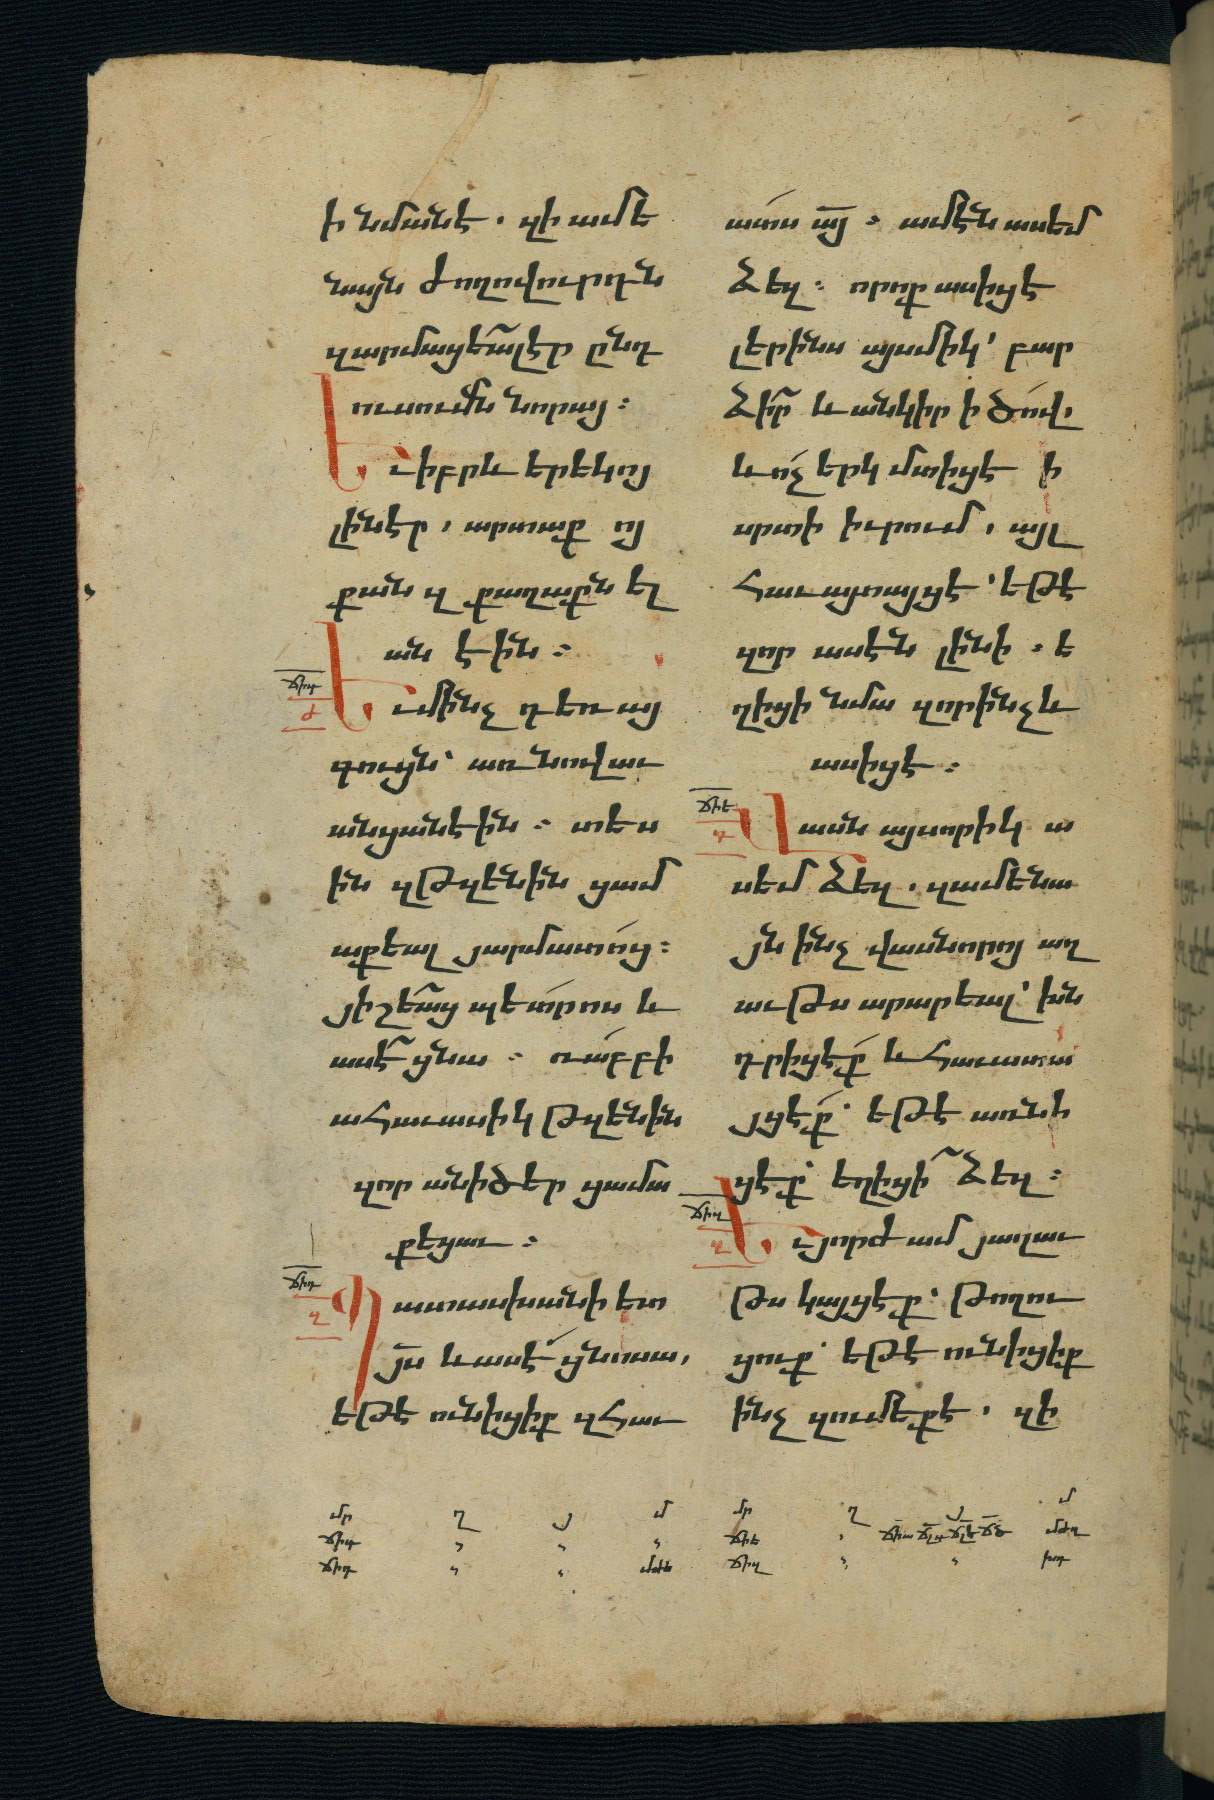 ի նմանէ . զի ամե
նայն ժողովուրդն
զարմացեա̃լէր ընդ
ուսումն նորայ ։
Եւ իբրև երեկոյ
լինէր , արտաք ոյ
քան զ քաղաքն ել
ան է ին ։
ճիգ
ժ
Եւ մինչ դեռ այ
գուցն՝ առ նովաւ
անցանէին ։ տես
ին զթզենին ցամ
աքեալ յարմատոց ։
յիշեա̃ց պետրոս և
ասէ̃ ցնա ։ ռաբբի
ահաւասիկ թզենին
զոր անիծեր ցամա
քեցաւ ։
ճիդ
Պատասխանի ետ
յ̅ս և ասէ ցնոսա ,
եթէ ունիցիք զհաւ
ատս ա̅յ ։ ամէն ասեմ
ձեզ ։ որոք ասիցէ
լերինս այսմիկ՝ բար
ձի̃ր և անկիր ի ծով ,
և ոչ երկ մտիցէ ի
սրտի իւրում , այլ
հաւատայցէ՝ եթէ
զոր ասէն լինի ։ ե
ղիցի նմա զորինչ և
ասիցէ ։
ճիե
Վասն այսորիկ ա
սեմ ձեզ . զամենա
յն ինչ վասնորոյ աղ
աւթս արարեալ՝ խն
դրիցէք և հաւատա
յցէք՝ եթէ առնի
ցէք՝ եղիցի̃ ձեզ ։
ճիզ
Եւ յորժամ յաղաւ
թս կայցէք՝ թողու
ցուք՝ եթէ ունիցիք
ինչ զումեքէ . զի
մր ղ յ մ մր ղ յ մ
ճիգ ճիե
ճիդ մժե ճիզ խդ